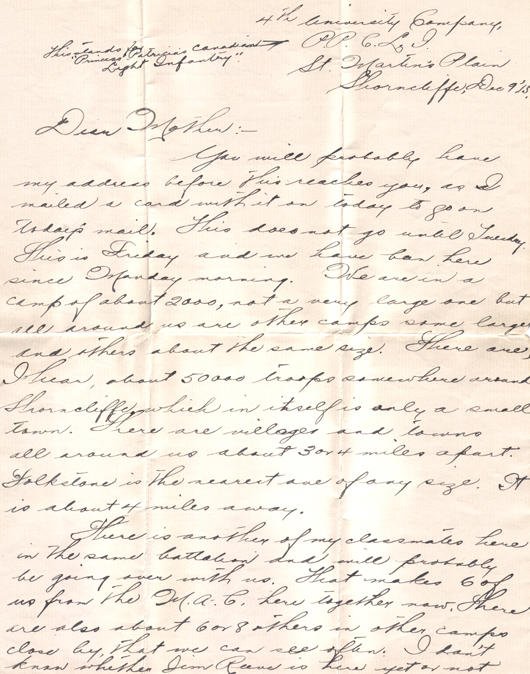 4th University Company,
P.P.C.L.I.
St. Martin's Plain
Shorncliffe, Dec 9'15.
This stands for
"Princess Patricias Canadian
Light Infantry"
Dear Mother:-
You will probably have
my address before this reaches you, as I
mailed a card with it on today to go on
todays mail. This does not go until Tuesday.
This is Friday and we have ben here
since Monday morning. We are in a
camp of about 2000, not a very large one but
all around us are other camps some larger
and others about the same size. There are,
I hear, about 50000 troops somewhere around
Shorncliffe, which in itself is only a small
town. There are villages and towns
all around us about 3 or 4 miles apart.
Folkstone is the nearest one of any size. It
is about 4 miles away.
There is another of my classmates here
in the same battalion and will probably
be going over with us. That makes 6 of
us from the M.A.C. here together now. There
are also about 6 or 8 others in other camps
close by, that we can see often. I don't
know whether Jim Reeve is here yet or not